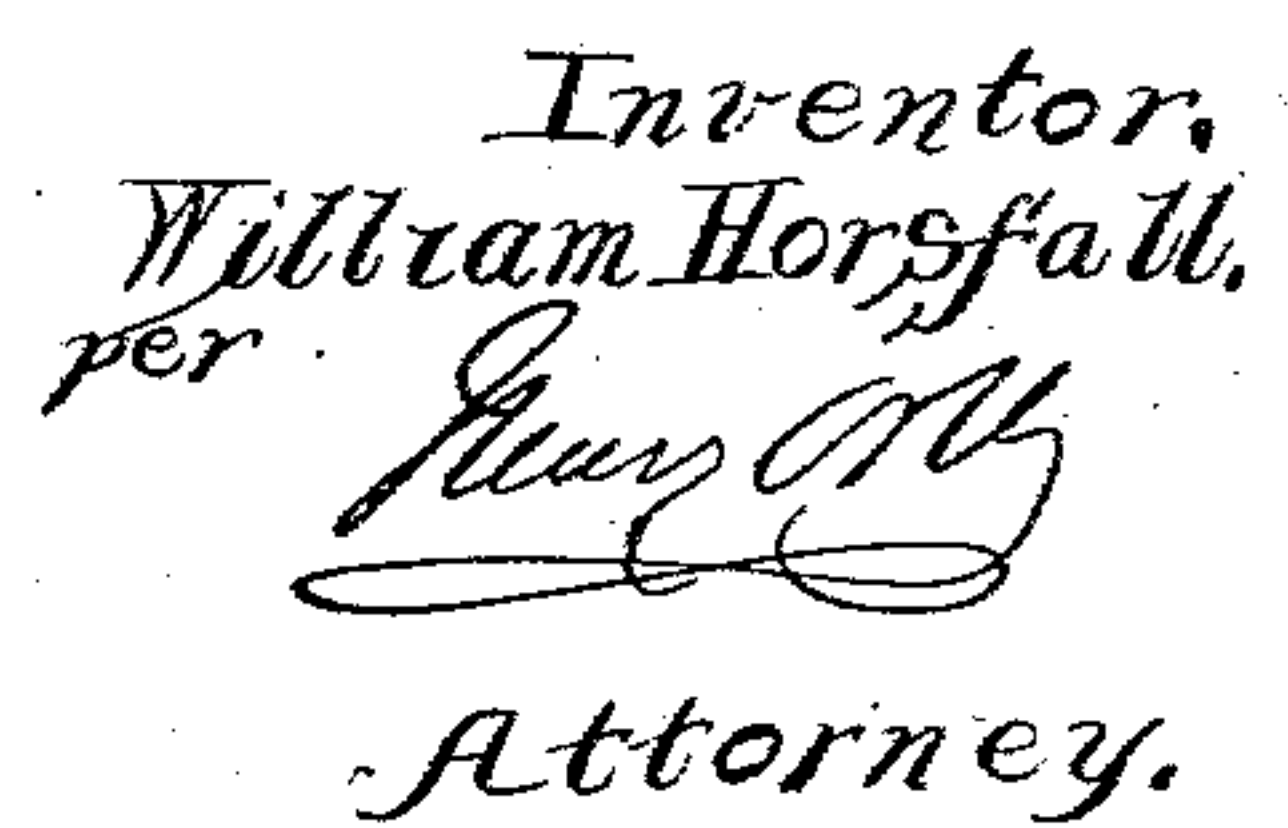 Inventor.
William Horsfall.
per
Henry Orth
Attorney.